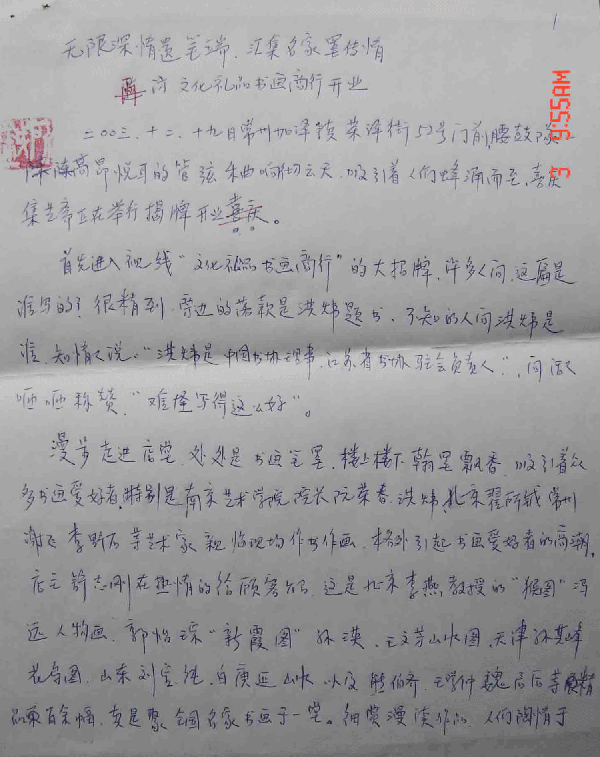 1
无限深情遗笔端,汇集名家墨传情
文化礼品书画商行开业
二00三、十二、十九日常州加泽镇菜泽街52号门前腰鼓队
高昂悦耳的管弦乐曲响切云天,吸引着人们蜂涌而至,喜庆
正在举行揭牌开业喜庆。
首先进入视线“文化礼品书画商行”的大招牌,许多人问,这属是
谁写的?很精到,旁边的落款是洪炜题书,不知的人问洪炜是
谁,知情人说:“洪炜是中国书协理事,江苏省书协驻会负责人”,问
咂咂称赞,“难怪写得这么好”。
漫步走进店堂,处处是书画笔墨,楼上楼下翰墨飘香,吸引着众
多书画爱好者,特别是南京艺术学院院长阮荣春、洪炜、北京 常州
李野石等艺术家亲临现场作书作画,格外引起书画爱好者的高潮,
店主 志刚在热情的给顾客介绍,这是北京李燕教授的“猴图”冯
远人物画、郭怡琮“新霞图”孙瑛、王文芳山水图、天津孙其峰
花鸟图、山东刘宝纯、白庚延山水以及 伯齐、王学仲 魏启后等精
品画百余幅,真是聚全国名家书画于一堂。细赏漫读作品,人们陶情于
3 9:55AM